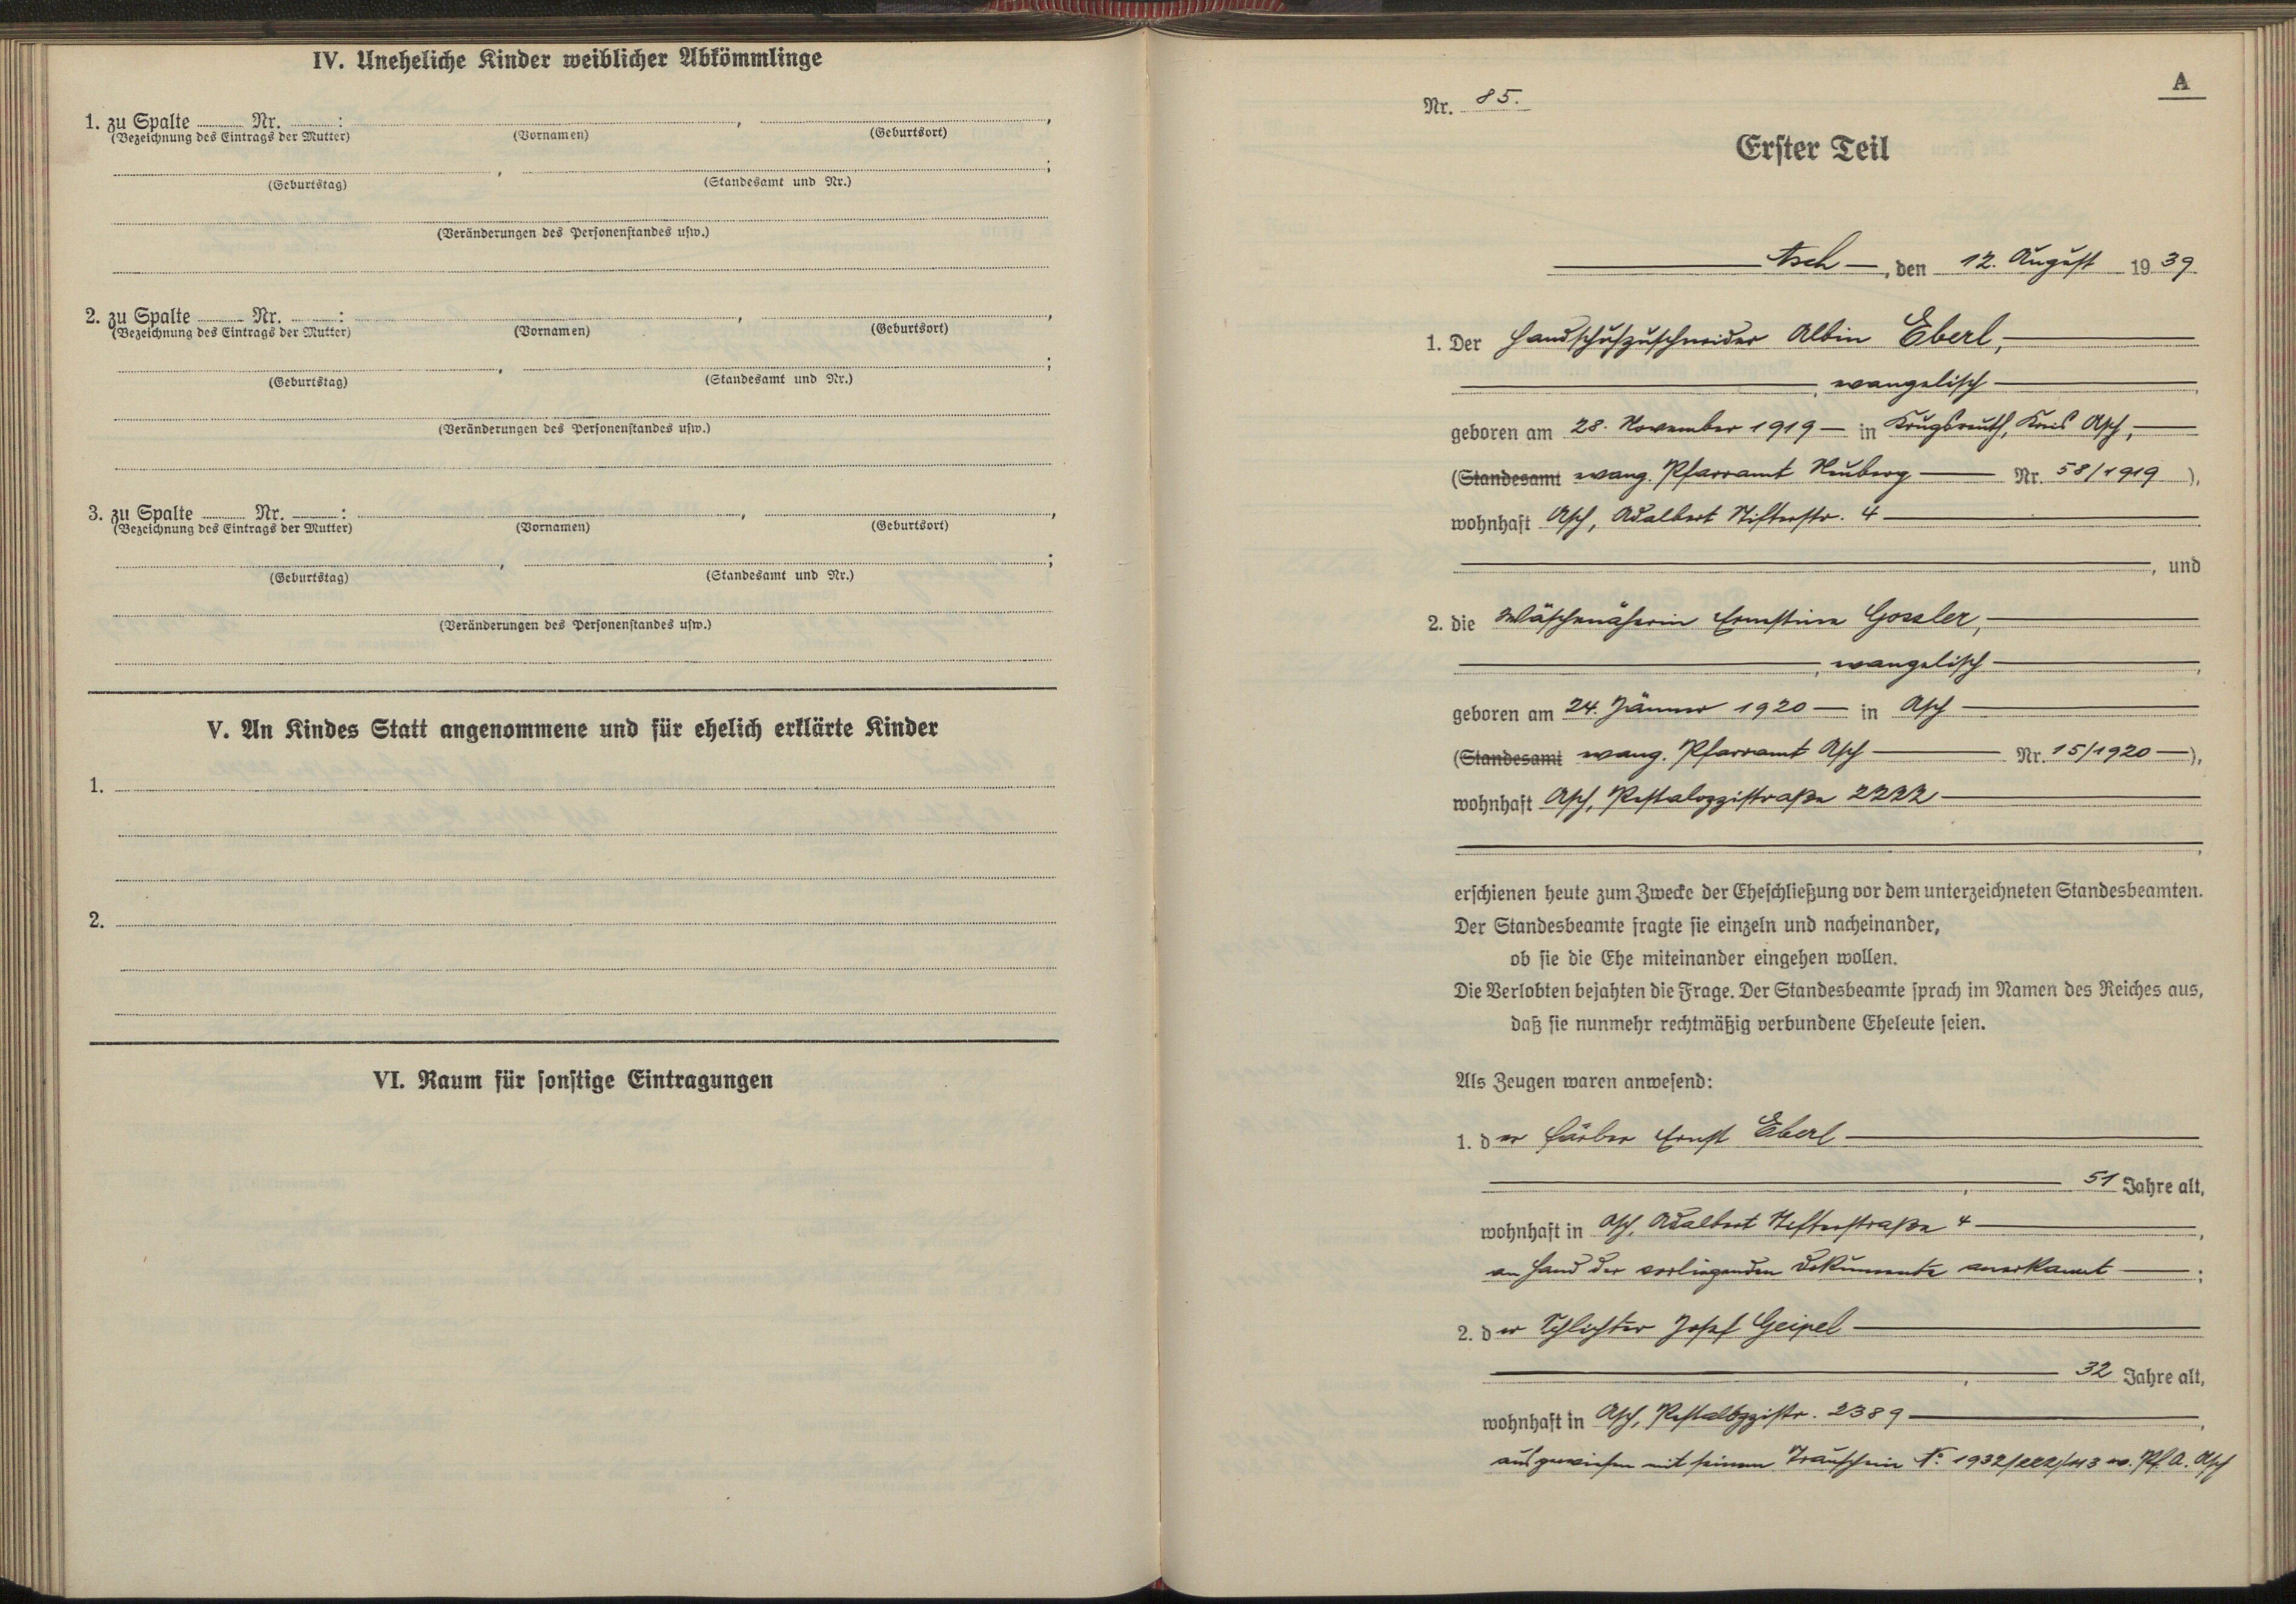 IV. Uneheliche Kinder weiblicher Abkömmlinge
1. zu Spalte ........ Nr. ........ : ........, ........,
(Bezeichnung des Eintrags der Mutter) (Vornamen) (Geburtsort)
........, ........;
(Geburtstag) (Standesamt und Nr.)
(Veränderungen des Personenstandes usw.)
2. zu Spalte ........ Nr. ........ : ........, ........,
(Bezeichnung des Eintrags der Mutter) (Vornamen) (Geburtsort)
........, ........;
(Geburtstag) (Standesamt und Nr.)
(Veränderungen des Personenstandes usw.)
3. zu Spalte ........ Nr. ........ : ........, ........,
(Bezeichnung des Eintrags der Mutter) (Vornamen) (Geburtsort)
........, ........;
(Geburtstag) (Standesamt und Nr.)
(Veränderungen des Personenstandes usw.)
V. An Kindes Statt angenommene und für ehelich erklärte Kinder
1.
2.
VI. Raum für sonstige Eintragungen
A
Nr. 85.
Erster Teil
Asch, den 12. August 1939
1. Der Handschuhzuschneider Albin Eberl,
, evangelisch,
geboren am 28. November 1919 in Krugsreuth, Kreis Asch,
(Standesamt evang. Pfarramt Neuberg Nr. 58/1919),
wohnhaft Asch, Adalbert Stifterstr. 4
, und
2. die Wäschenäherin Ernestine Gossler,
, evangelisch,
geboren am 24. Jänner 1920 in Asch
(Standesamt evang. Pfarramt Asch Nr. 15/1920),
wohnhaft Asch, Pestalozzistraße 2222
,
erschienen heute zum Zwecke der Eheschließung vor dem unterzeichneten Standesbeamten.
Der Standesbeamte fragte sie einzeln und nacheinander,
ob sie die Ehe miteinander eingehen wollen.
Die Verlobten bejahten die Frage. Der Standesbeamte sprach im Namen des Reiches aus,
daß sie nunmehr rechtmäßig verbundene Eheleute seien.
Als Zeugen waren anwesend:
1. der Färber Ernst Eberl
, 51 Jahre alt,
wohnhaft in Asch, Adalbert Stifterstraße 4,
an Hand der vorliegenden Dokumente anerkannt;
2. der Schlichter Josef Geipel
, 32 Jahre alt,
wohnhaft in Asch, Pestalozzistr. 2389,
ausgewiesen mit seinem Trauschein No 1932/222/43 ev. Pf. A. Asch